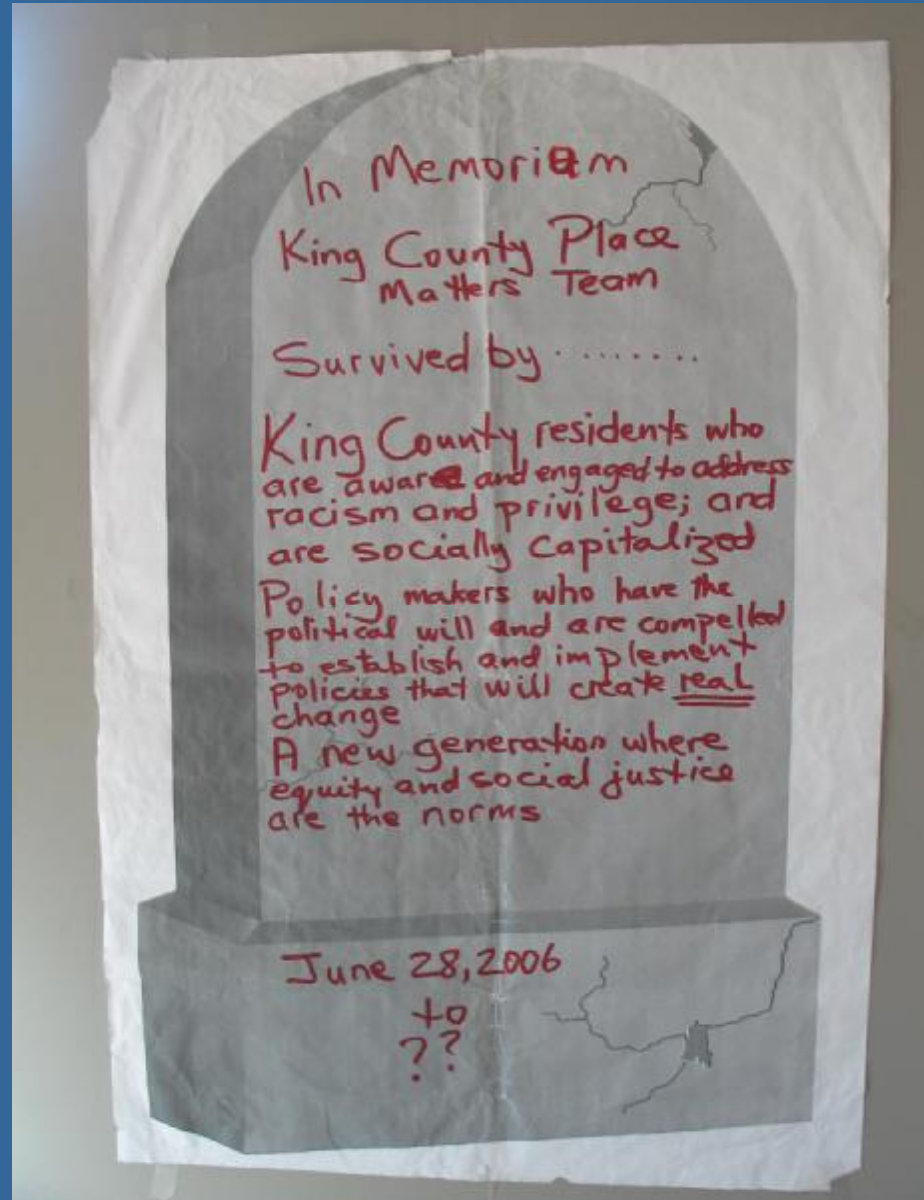 In Memoriam
King County Place
Matters Team
Survived by ........
King County residents who
are aware and engaged to address
racism and privilege; and
are socially capitalized
Policy makers who have the
political will and are compelled
to establish and implement
policies that will create real
change
A new generation where
equity and social justice
are the norms
June 28, 2006
to
??